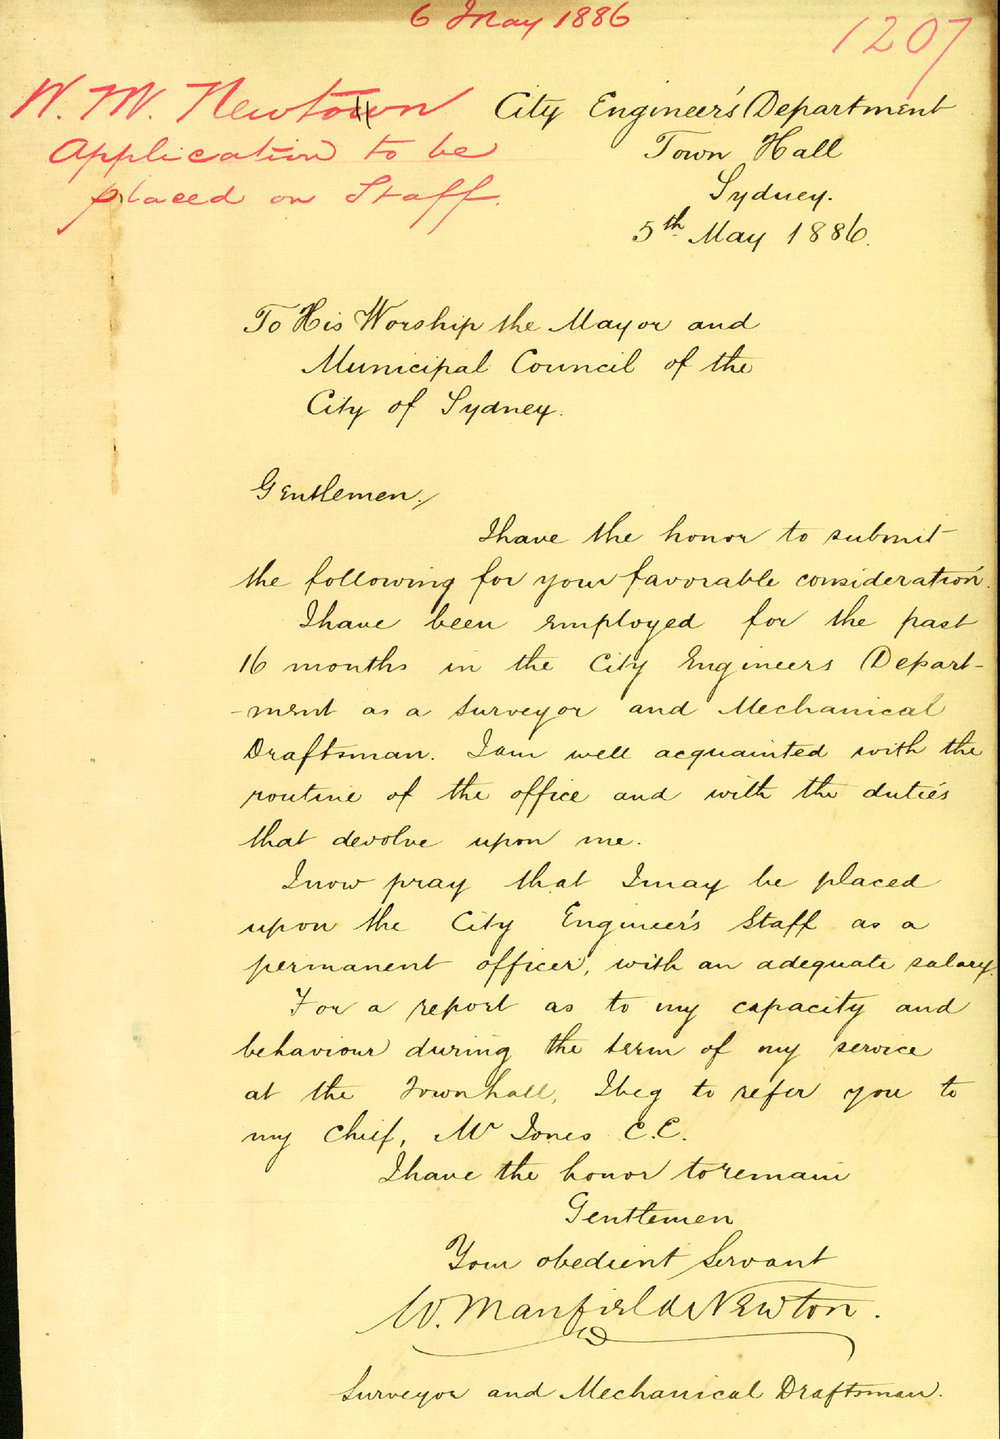 6 May 1886
1207
W. M. Newton
Application to be
placed on Staff.
City Engineer's Department
Town Hall
Sydney.
5th May 1886.
To His Worship the Mayor and
Municipal Council of the
City of Sydney.
Gentlemen,
I have the honor to submit
the following for your favorable consideration.
I have been employed for the past
16 months in the City Engineers Depart-
-ment as a Surveyor and Mechanical
Draftsman. I am well acquainted with the
routine of the office and with the duties
that devolve upon me.
I now pray that I may be placed
upon the City Engineer's Staff as a
permanent officer, with an adequate salary.
For a report as to my capacity and
behaviour during the term of my service
at the Townhall, I beg to refer you to
my Chief, Mr Jones C.E.
I have the honor to remain
Gentlemen
Your obedient Servant
W. Manfield Newton.
Surveyor and Mechanical Draftsman.